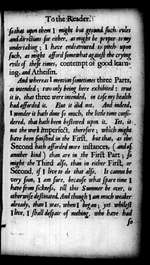 To the Reader.
so that upon them I might but ground such rules
and directions for either, as might be proper to my
undertaking; I have endeavoured to pitch upon
such, as might afford somewhat against the crying
evils of these times, contempt of good learn-
ing, and Atheism.
And whereas I mention sometimes three Parts,
as intended; two only being here exhibited: true
it is, that three were intended, in case my health
had afforded it. But it did not. And indeed,
I wonder it hath done so much, the little time consi-
dered, that hath been bestowed upon it. Yet, is
not the work imperfect, therefore; which might
have been finished in the First, but that, as the
Second hath afforded more instances, (and of
another kind) than are in the First Part; so
might the Third also, than in either First, or
Second, if I live to do that also. It cannot be
very soon, I am sure, because what spare time I
have from sickness, till this Summer be over, is
otherwise destinated. And though I am much weaker
already, than I was, when I began; yet whilest
I live, I shall despair of nothing, who have had
so